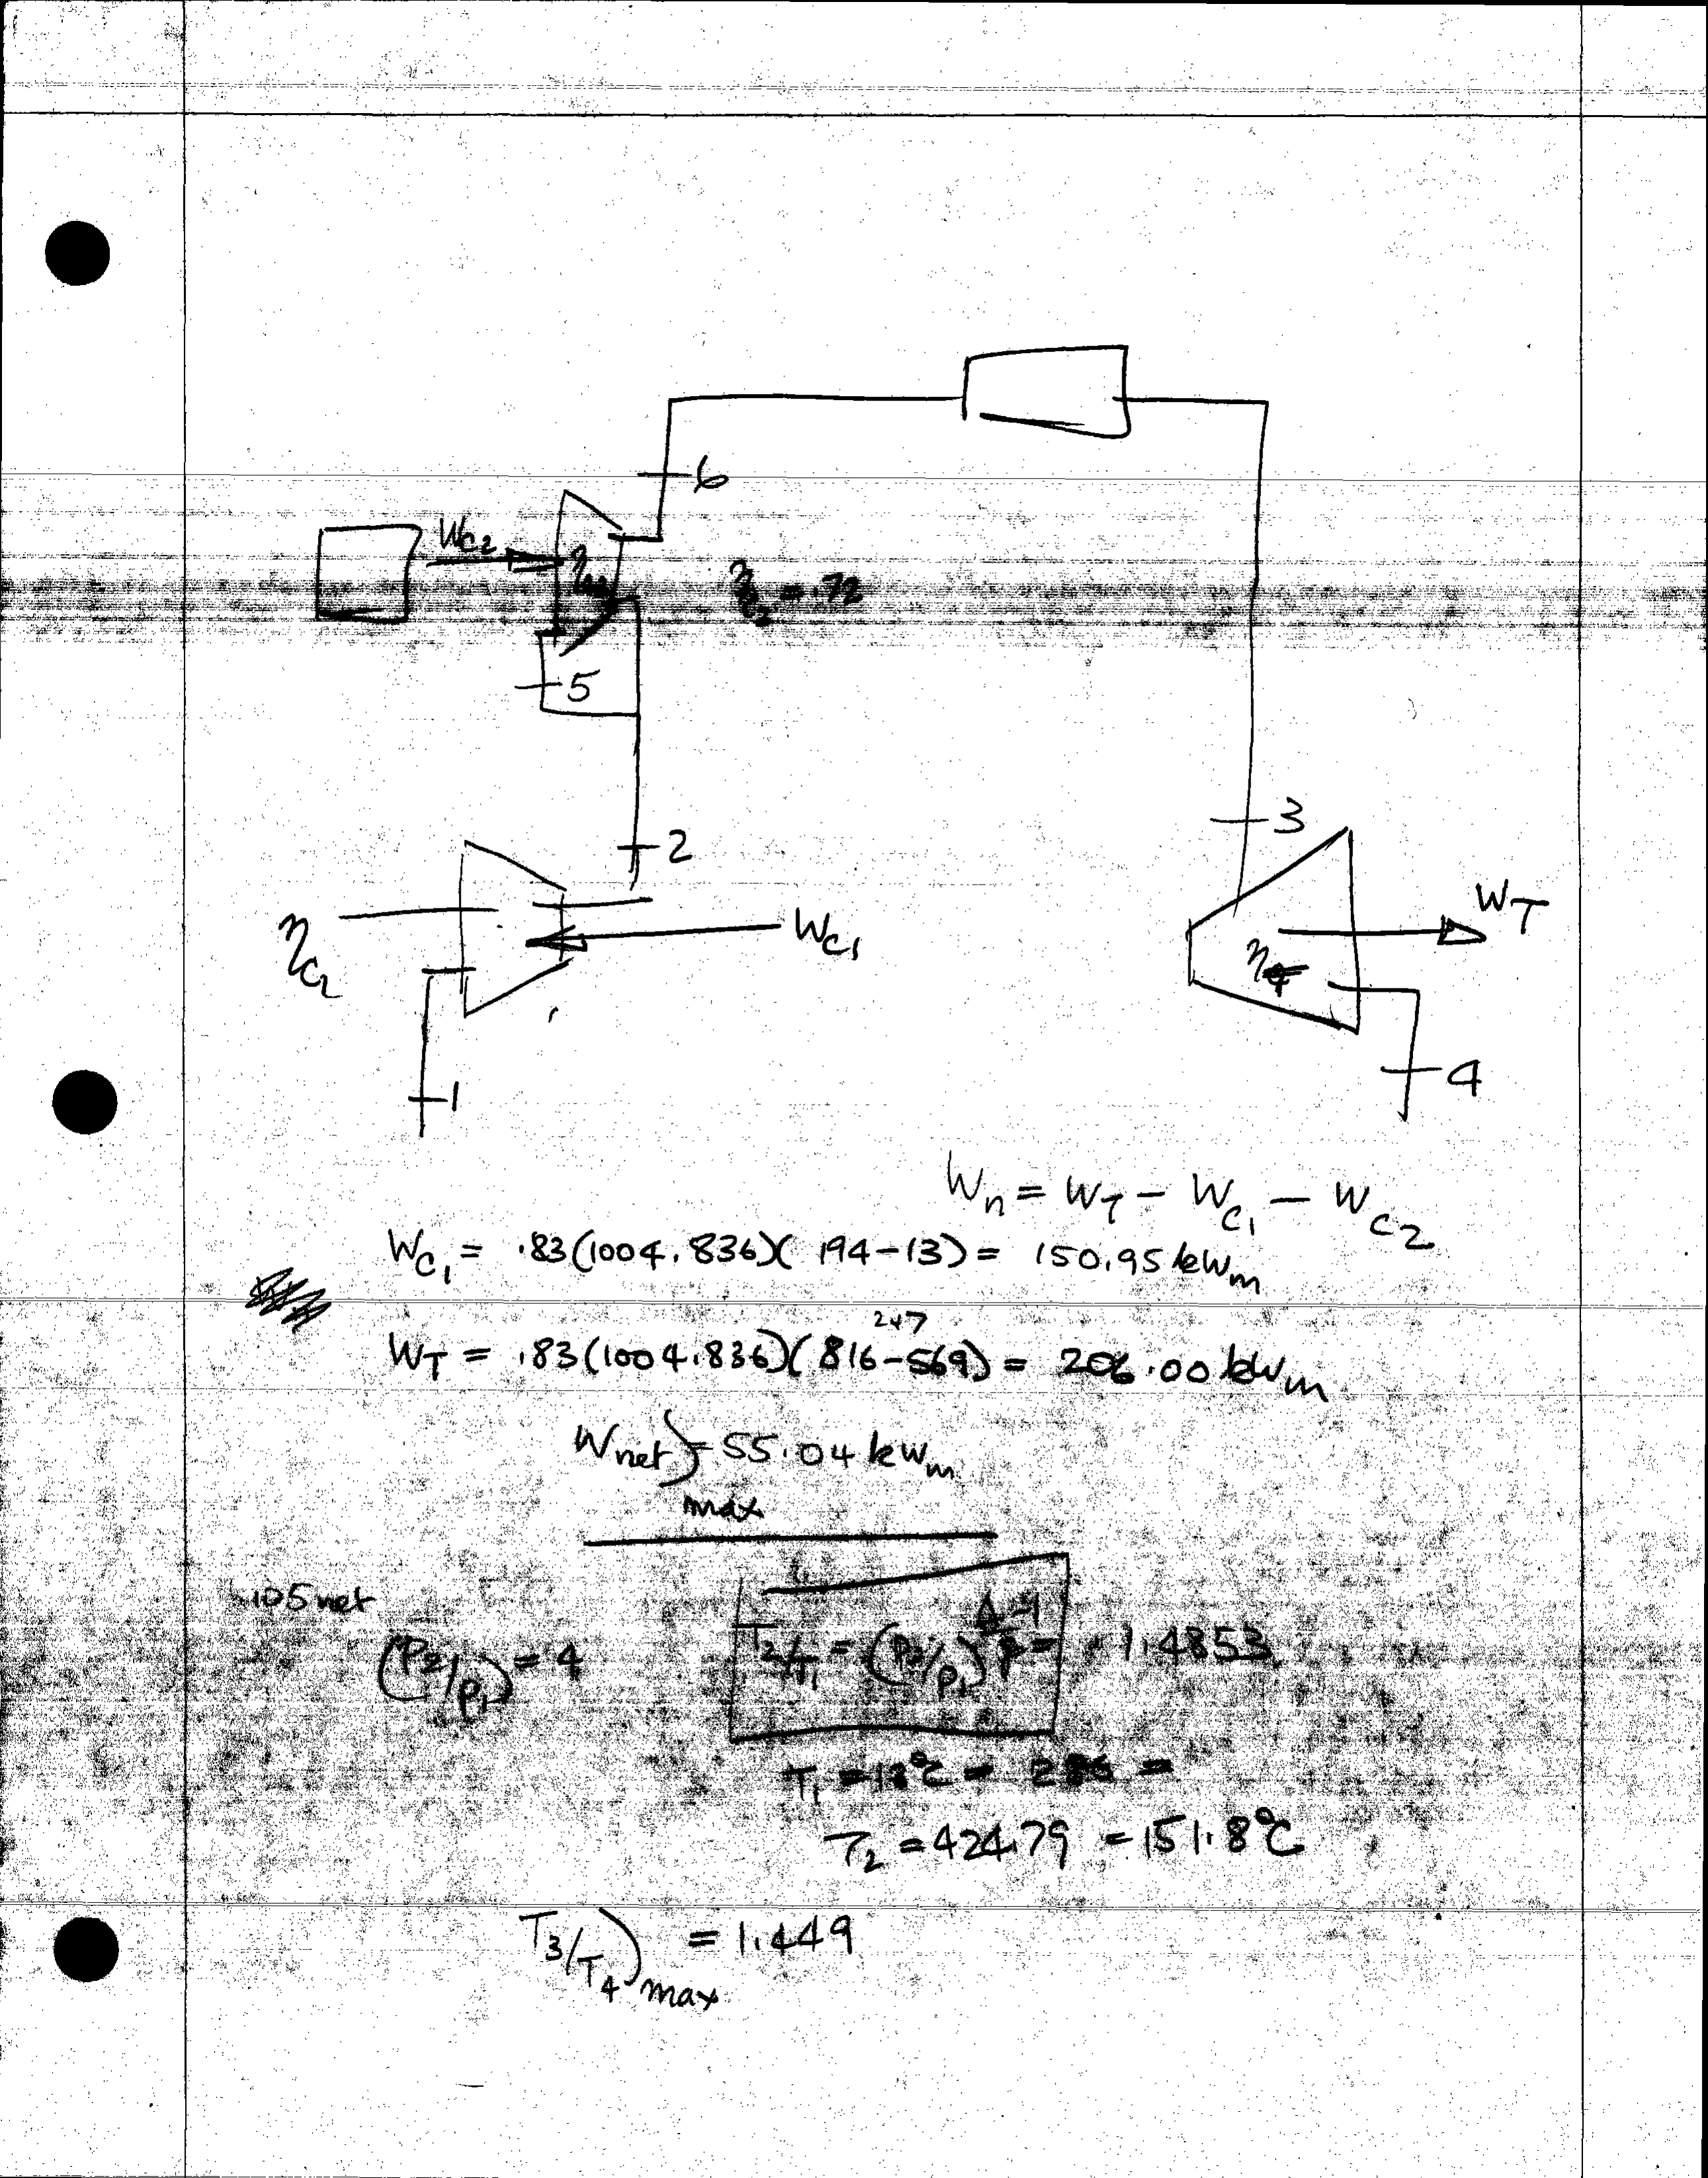 6
W_C2
η_C2 = .72
5
2
3
W_T
η_C2
W_C1
1
4
W_n = W_T - W_C1 - W_C2
W_C1 = .83(1004.836)(194-13) = 150.95 kW_m
247
W_T = .83(1004.836)(816-569) = 206.00 kW_m
W_net) = 55.04 kW_m
max
105 net
(P2/P1) = 4
T2/T1 = (P2/P1) = 1.4853
T1 = 13°C = 286 =
T2 = 424.79 = 151.8°C
T3/T4)max = 1.449